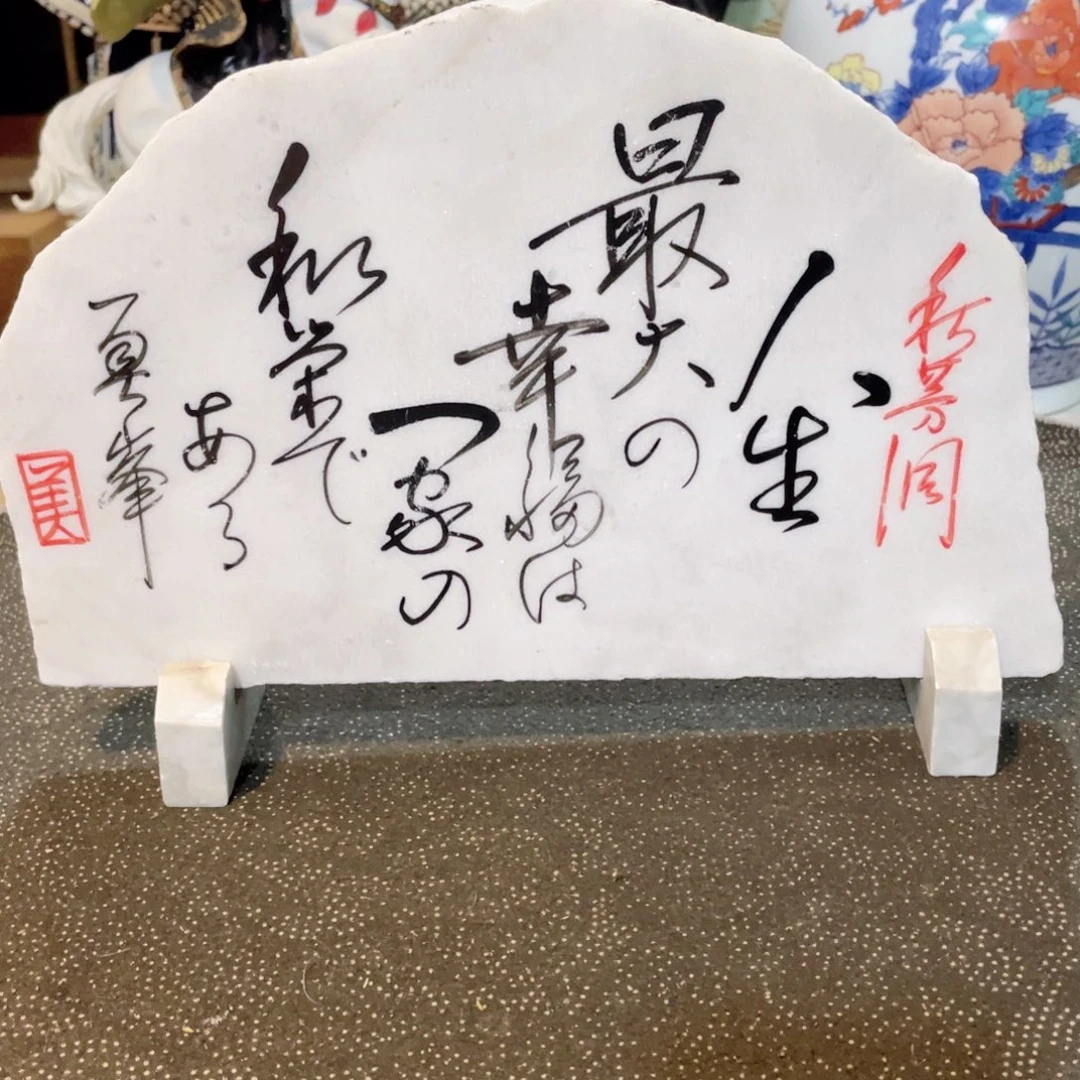 人生
最大の
幸福は
一家の
和楽で
ある